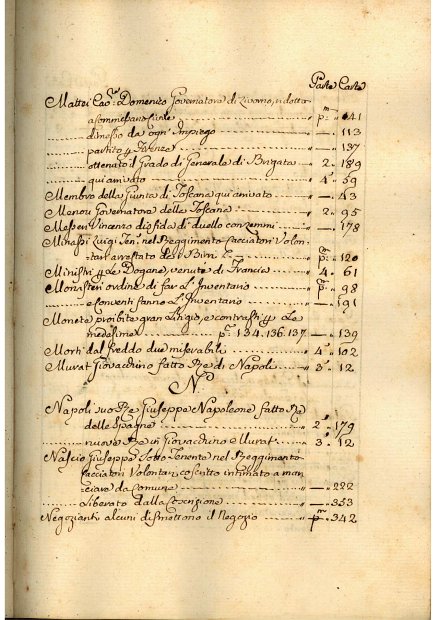 Parte Carte
Mattei Cav.e Domenico Governatore di Livorno, ridotto
a commissario civile " p.ma " 41
dimesso da ogni Impiego " — " 113
partito p Firenze " — " 137
ottenuto il Grado di Generale di Brigata " 2. " 189
qui arrivato " 4. " 59
Membro della Giunta di Toscana qui arrivato " — " 43
Menou Governatore della Toscana " 2. " 95
Messeri Vincenzo disfida di duello con " — " 178
Minassi Luigi Ten. nel Reggimento Cacciatori Volon-
tari arrestato da " p.ma " 120
Ministri p Le Dogane, venuti di Francia " 4. " 61
Monisteri ordine di far L'Inventario " p.ma " 98
e conventi fanno L'Inventario " — " 191
Monete proibite gran Litigio, e contrasti p Le
medesime p.ma 134. 136. 137. " — " 139
Morti dal freddo due miserabili " 4. " 102
Murat Giovacchino fatto Re di Napoli " 3. " 12
N.
Napoli suo Re Giuseppe Napoleone fatto Re
delle Spagne " 2. " 179
nuovo Re in Giovacchino Murat " 3. " 12
Giuseppe Sotto Tenente nel Reggimento
Cacciatori Volontari, coscritto intimato a mar-
ciare da comune " — " 222
Liberato dalla " — " 353
Negozianti alcuni dismettono il Negozio " p.ma " 342